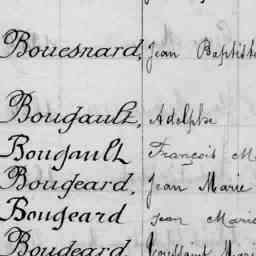 Bouesnard, Jean Baptiste
Bougault, Adolphe
Bougault François M
Bougeard, Jean Marie
Bougeard Jean Marie
Bougeard Toussaint Mari